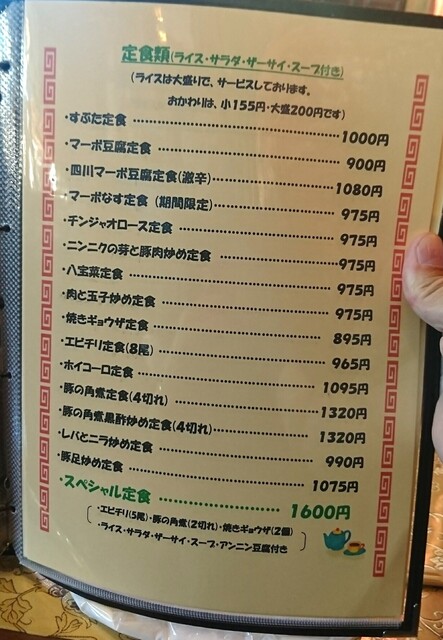 定食類(ライス・サラダ・ザーサイ・スープ付き)
(ライスは大盛りで、サービスしております。
おかわりは、小155円・大盛200円です)
・すぶた定食………………………………1000円
・マーボ豆腐定食………………………………900円
・四川マーボ豆腐定食(激辛)………………………1080円
・マーボなす定食(期間限定)………………………975円
・チンジャオロース定食………………………………975円
・ニンニクの芽と豚肉炒め定食………………………975円
・八宝菜定食………………………………975円
・肉と玉子炒め定食………………………………975円
・焼きギョウザ定食………………………………895円
・エビチリ定食(8尾)………………………………965円
・ホイコーロ定食………………………………1095円
・豚の角煮定食(4切れ)………………………1320円
・豚の角煮黒酢炒め定食(4切れ)………………1320円
・レバとニラ炒め定食………………………………990円
・豚足炒め定食………………………………1075円
・スペシャル定食………………………1600円
・エビチリ(5尾)・豚の角煮(2切れ)・焼きギョウザ(2個)
・ライス・サラダ・ザーサイ・スープ・アンニン豆腐付き